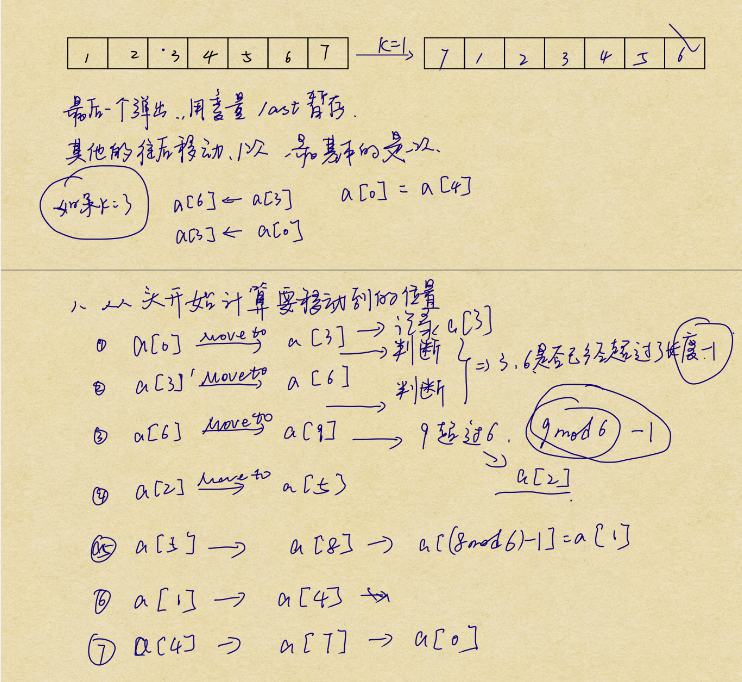 1 2 3 4 5 6 7 K=1 7 1 2 3 4 5 6
最后一个弹出,用变量 last 暂存.
其他的往后移动1次 最基本的是一次.
如果k=3 a[6] ← a[3] a[0] = a[4]
a[3] ← a[0]
1、从头开始计算要移动到的位置
① a[0] move to a[3] → 记录 a[3]
→ 判断
② a[3] move to a[6] ⇒ 3、6是否已经超过了长度-1
→ 判断
③ a[6] move to a[9] → 9超过6. 9 mod 6 -1
④ a[2] move to a[5] a[2]
⑤ a[5] → a[8] → a[(8mod6)-1]=a[1]
⑥ a[1] → a[4] →
⑦ a[4] → a[7] → a[0]